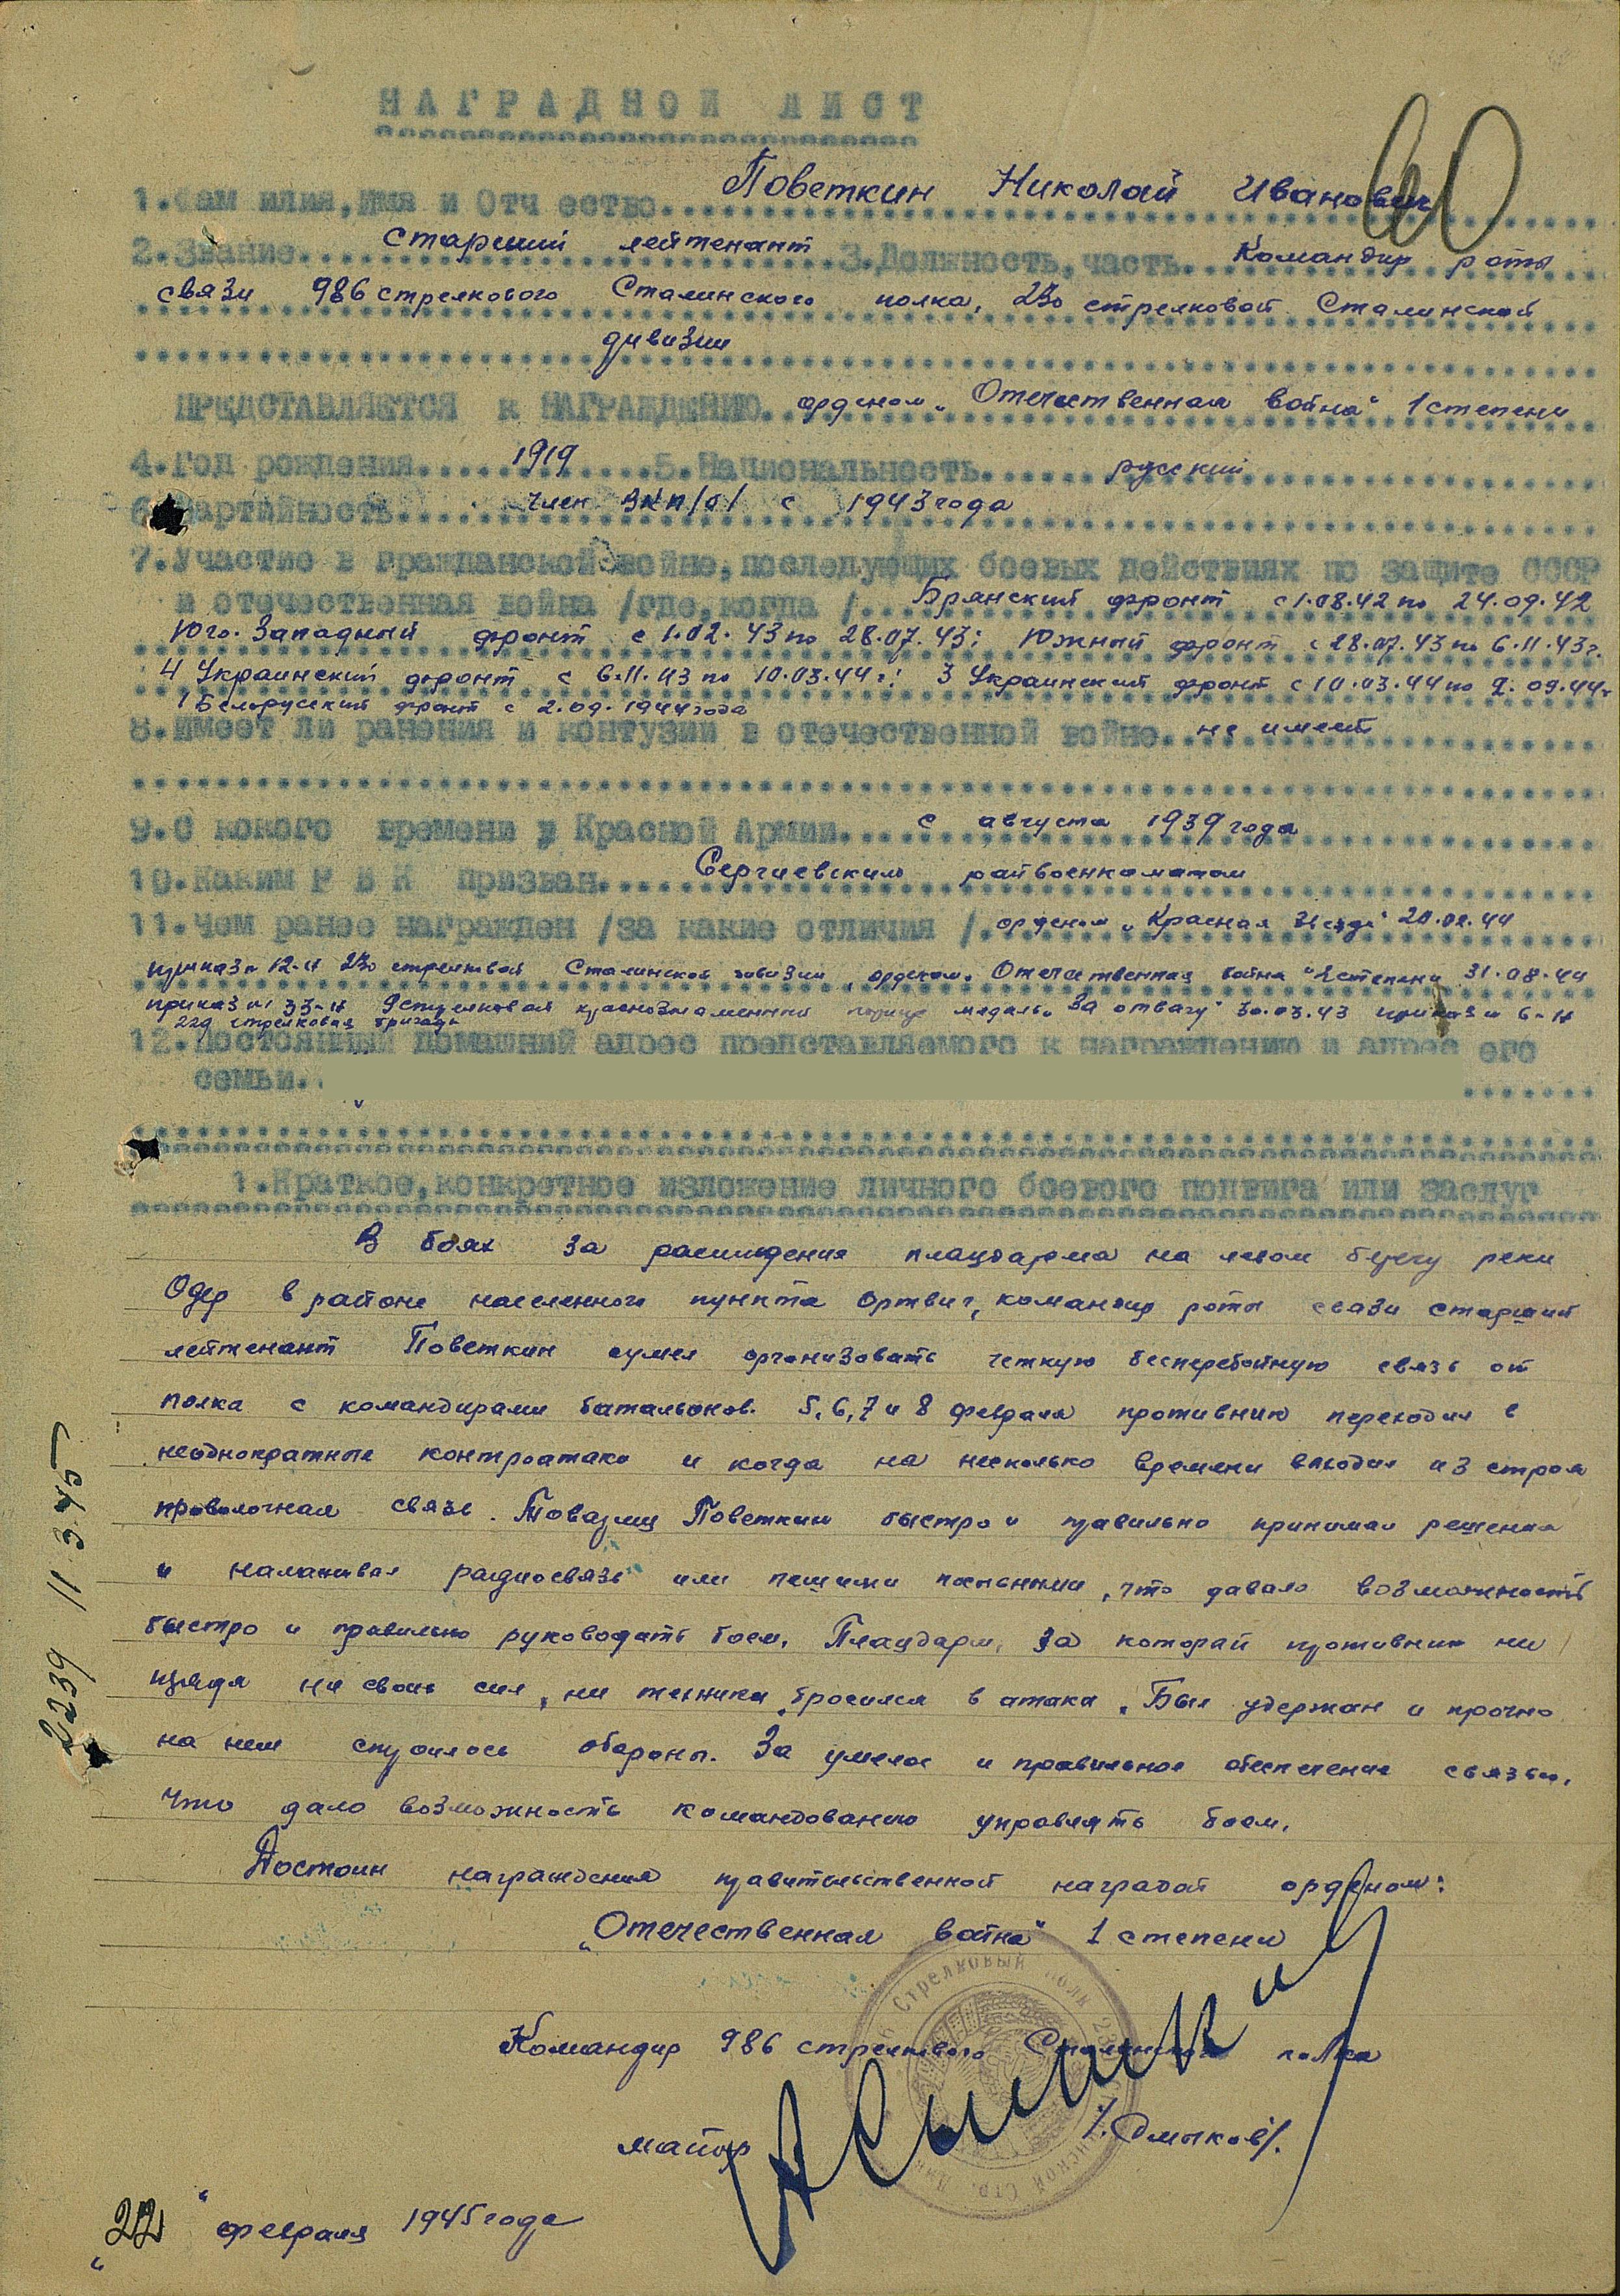 НАГРАДНОЙ ЛИСТ
1. Фам илия, Имя и Отч ество Поветкин Николай Иванович
60
2. Звание Старший лейтенант 3. Должность, часть Командир роты
связи 986 стрелкового Сталинского полка, 230 стрелковой Сталинской
дивизии
ПРЕДСТАВЛЯЕТСЯ к НАГРАЖДЕНИЮ орденом „Отечественная война" 1 степени
4. Год рождения 1919 5. Национальность русский
6. Партийность член ВКП/б/ с 1943 года
7. Участие в гражданской войне, последующих боевых действиях по защите СССР
и отечественная война /где, когда/ Брянский фронт с 1.08.42 по 24.09.42
Юго. Западный фронт с 1.02.43 по 28.07.43; Южный фронт с 28.07.43 по 6.11.43г.
4 Украинский фронт с 6.11.43 по 10.03.44 г; 3 Украинский фронт с 10.03.44 по 2.09.44г
1 Белорусский фронт с 2.09.1944 года
8. Имеет ли ранения и контузии в отечественной войне не имеет
9. С кокого времени в Красной Армии с августа 1939 года
10. Каким Р В К призван Сергиевским райвоенкоматом
11. Чем ранее награжден /за какие отличия/ орденом „Красная Звезда" 20.02.44
приказ № 12-н 230 стрелковой Сталинской дивизии, орденом „Отечественная война" 2 степени 31.08.44
приказ № 33-н 9 стрелковая краснознаменный корпус медаль „За отвагу" 30.03.43 приказ № 6-н
229 стрелковая бригада
12. Постоянный домашний адрес представляемого к награждению и адрес его
семьи.
1. Краткое, конкретное изложение личного боевого подвига или заслуг
В боях за расширения плацдарма на левом берегу реки
Одер в районе населенного пункта Ортвиг, командир роты связи старший
лейтенант Поветкин сумел организовать четкую бесперебойную связь от
полка с командирами батальонов. 5, 6, 7 и 8 февраля противник переходил в
неоднократные контратаки и когда на несколько времени выходил из строя
проволочная связь. Товарищ Поветкин быстро и правильно принимал решения
и налаживал радиосвязь или пешими посыльными, что давало возможность
быстро и правильно руководить боем. Плацдарм, за который противник ни
щадя ни своих сил, ни техники, бросился в атаки. Был удержан и прочно
на нем строилось обороны. За умелое и правильное обеспечение связью,
что дало возможность командованию управлять боем.
Достоин награждения правительственной наградой орденом:
„Отечественная война" 1 степени
Командир 986 стрелкового Сталинского полка
майор /Смыков/.
„22" февраля 1945 года
2239 11.3.45